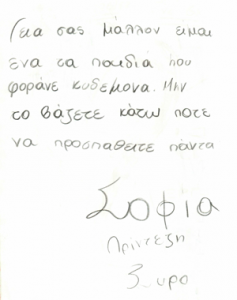 Γεια σας μάλλον ειμαι
ενα τα παιδια που
φοράνε κυδεμονα. Μην
το βάζετε κάτω ποτε
να προσπαθειτε πάντα
Σοφια
Πριντεζη
Συρο